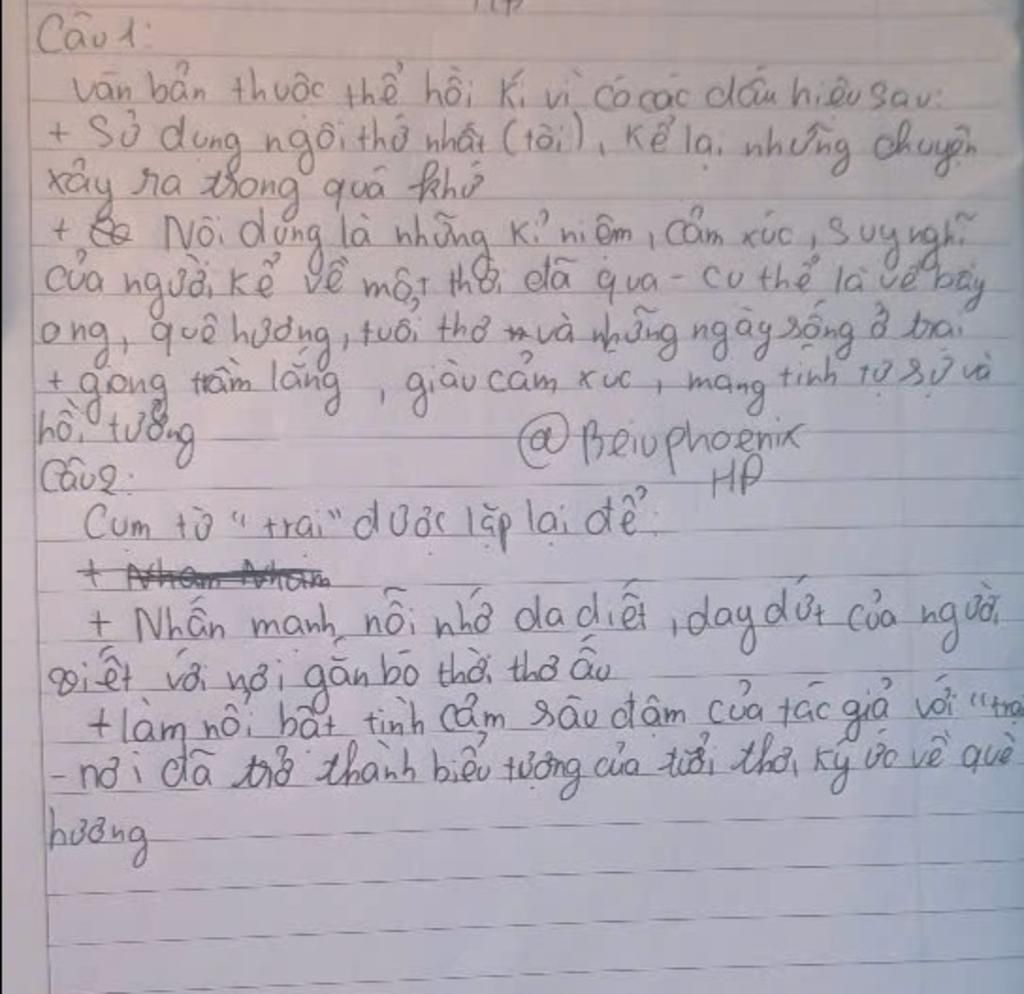 Câu 1:
văn bản thuộc thể hồi kí vì có các dấu hiệu sau:
+ Sử dụng ngôi thứ nhất (tôi), kể lại những chuyện
xảy ra trong quá khứ
+ Nội dung là những kỉ niệm, cảm xúc, suy nghĩ
của người kể về một thời đã qua - cụ thể là về bầy
ong, quê hương, tuổi thơ và những ngày sống ở trại
+ giọng trầm lắng, giàu cảm xúc, mang tính tự sự và
hồi tưởng
@Beiuphoenix
HP
Câu 2:
Cụm từ "trại" được lặp lại để:
+
+ Nhấn mạnh nỗi nhớ da diết, day dứt của người
viết với nơi gắn bó thời thơ ấu
+ làm nổi bật tình cảm sâu đậm của tác giả với "trại
- nơi đã trở thành biểu tượng của tuổi thơ, ký ức về quê
hương